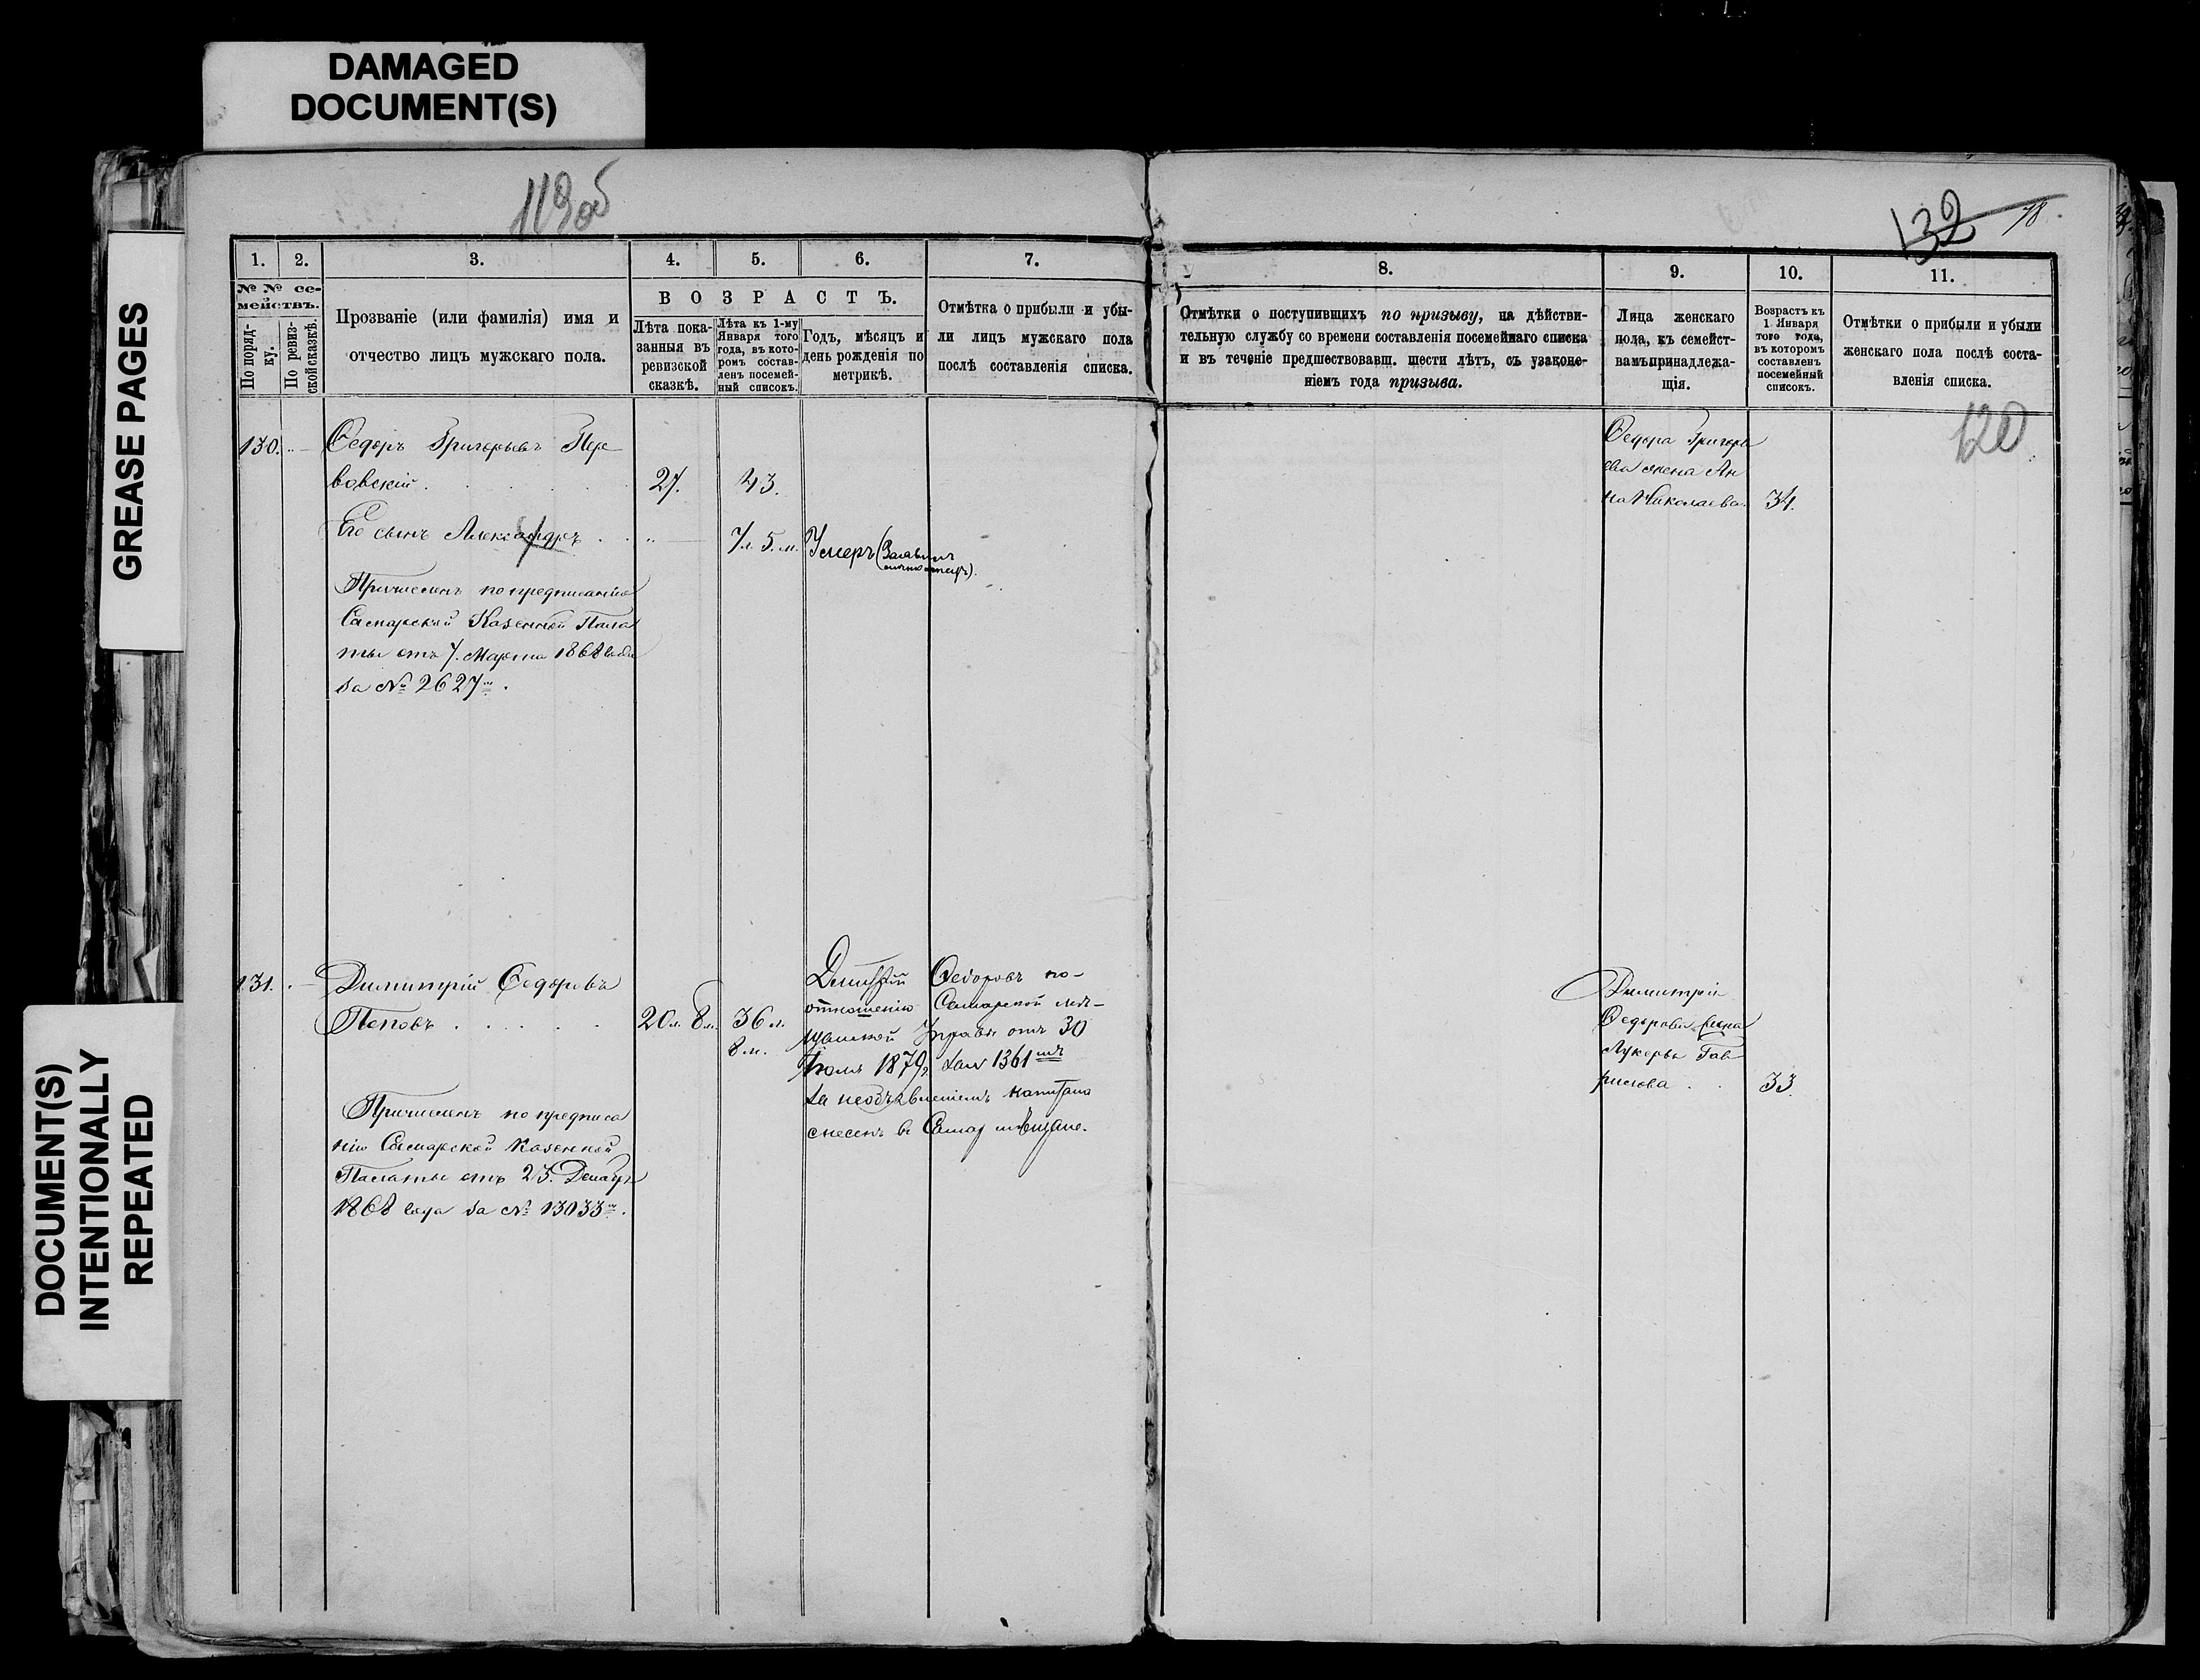 DAMAGED
DOCUMENT(S)
GREASE PAGES
DOCUMENT(S)
INTENTIONALLY
REPEATED
119об
132
78.
120
1.
2.
3.
4.
5.
6.
7.
8.
9.
10.
11.
№ № се-
мействъ.
По поряд-
ку.
По ревиз-
ской сказкѣ.
Прозваніе (или фамилія) имя и
отчество лицъ мужскаго пола.
ВОЗРАСТЪ.
Лѣта пока-
занныя въ
ревизской
сказкѣ.
Лѣта къ 1-му
Января того
года, въ кото-
ромъ состав-
ленъ посемей-
ный списокъ.
Годъ, мѣсяцъ и
день рожденія по
метрикѣ.
Отмѣтка о прибыли и убы-
ли лицъ мужскаго пола
послѣ составленія списка.
Отмѣтки о поступившихъ по призыву, на дѣйстви-
тельную службу со времени составленія посемейнаго списка
и въ теченіе предшествовавш. шести лѣтъ, съ узаконе-
ніемъ года призыва.
Лица женскаго
пола, къ семейст-
вамъ принадлежа-
щія.
Возрастъ къ
1 Января
того года,
въ которомъ
составленъ
посемейный
списокъ.
Отмѣтки о прибыли и убыли
женскаго пола послѣ соста-
вленія списка.
130.
Федоръ Григорьевъ Пере
вовскій
27.
43.
Федора Григорь
ева жена Ан
на Николаева.
34.
Его сынъ Александръ
7 л. 5. м.
Умеръ
Причисленъ по предписанію
Самарской Казенной Пала
ты отъ 7. Марта 1868 года
за № 2627.
131.
Димитрій Федоровъ
Поповъ
20 л. 8 м.
36 л.
8 м.
Димитрій Федоровъ по-
отношенію Самарской мѣ-
щанской Управы отъ 30
Іюля 1879 г. за № 1361
снесенъ въ
Димитрія
Федорова жена
Лукерья Гав
рилова
33.
Причисленъ по предписа
нію Самарской Казенной
Палаты отъ 23. Декабря
1868 года за № 13033.